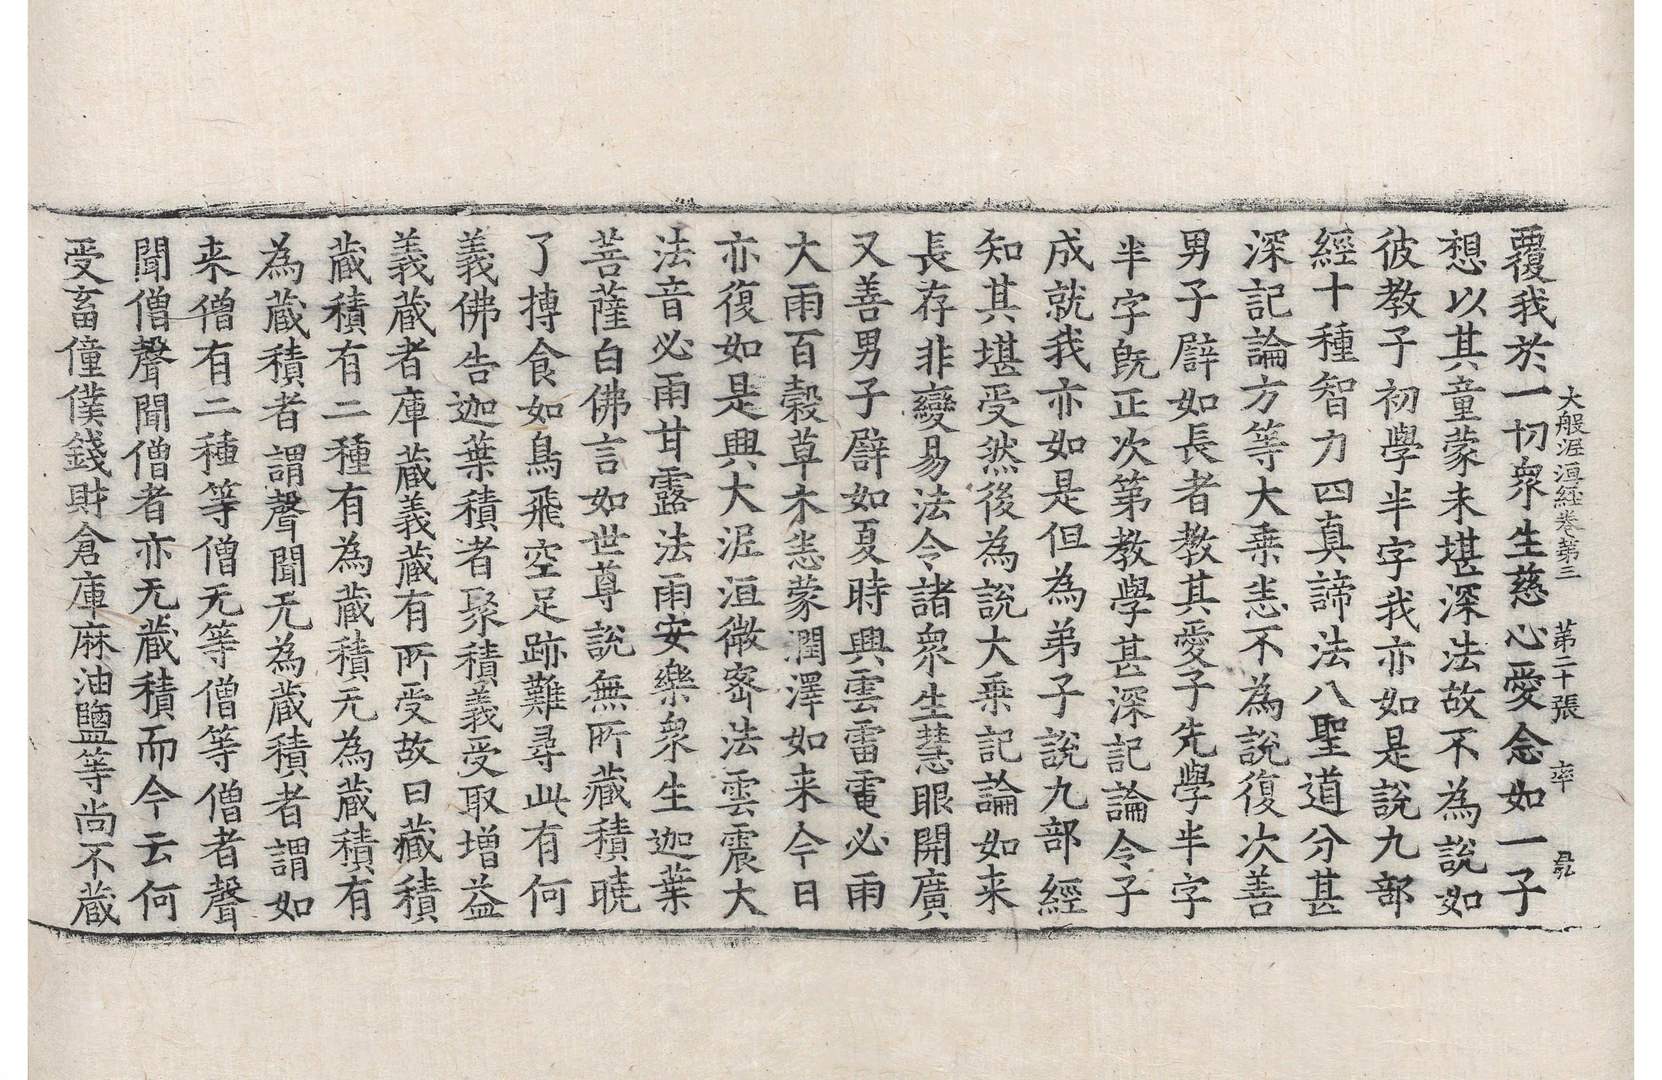 大般泥洹經卷第三　第二十張　率
覆我於一切衆生慈心愛念如一子
想以其童蒙未堪深法故不為說如
彼教子初學半字我亦如是說九部
經十種智力四真諦法八聖道分甚
深記論方等大乗悉不為說復次善
男子譬如長者教其愛子先學半字
半字旣正次第教學甚深記論令子
成就我亦如是但為弟子說九部經
知其堪受然後為說大乗記論如来
長存非變易法令諸衆生慧眼開廣
又善男子譬如夏時興雲雷電必雨
大雨百穀草木悉蒙潤澤如来今日
亦復如是興大泥洹微密法雲震大
法音必雨甘露法雨安樂衆生迦葉
菩薩白佛言如世尊說無所藏積曉
了摶食如鳥飛空足跡難尋此有何
義佛告迦葉積者聚積義受取增益
義藏者庫藏義藏有所受故曰藏積
藏積有二種有為藏積无為藏積有
為藏積者謂聲聞无為藏積者謂如
来僧有二種等僧无等僧等僧者聲
聞僧聲聞僧者亦无藏積而今云何
受畜僮僕錢財倉庫麻油鹽等尚不藏